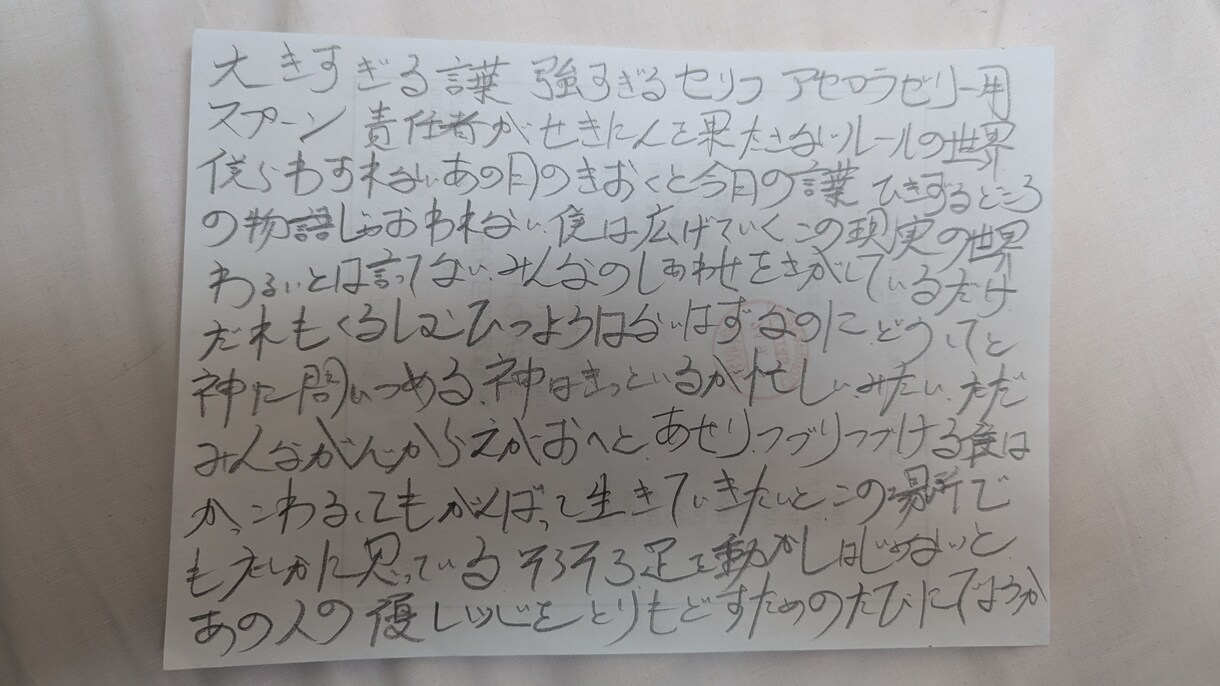 大きすぎる言葉 強すぎるセリフ アセロラゼリー用
スプーン 責任者がせきにんを果たさないルールの世界
僕らわすれないあの日のきおくと今日の言葉 ひきずるところ
の物語じゃおわれない 僕は広げていくこの現実の世界
わるいとは言ってない、みんなのしあわせをさがしているだけ
だれもくるしむひつようはないはずなのにどうしてと
神に問いつめる、神はきっといるが忙しいみたい、ただ
みんながんからえがおへと あせりつづりつづける僕は
かっこわるくてもがんばって生きていきたいと この場所で
もたしかに思っている そろそろ足を動かしはじめないと
あの人の優しい をとりもどすためのたびにでようか